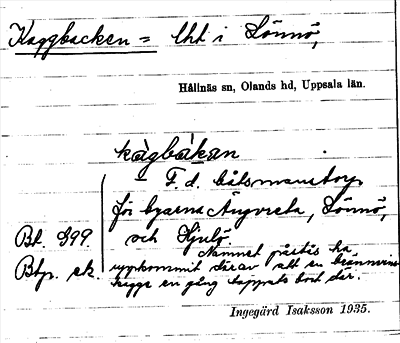 Kaggbacken = lht i Sönnö,
Hållnäs sn, Olands hd, Uppsala län.
kàgbákan
F. d. båtsmanstorp
för byarna Ängvreta, Sönnö,
Bl. 899. och Hjulö.
Namnet påstås ha
Btp. ek uppkommit därav att en brännvins-
kagge en gång tappats bort där.
Ingegärd Isaksson 1935.